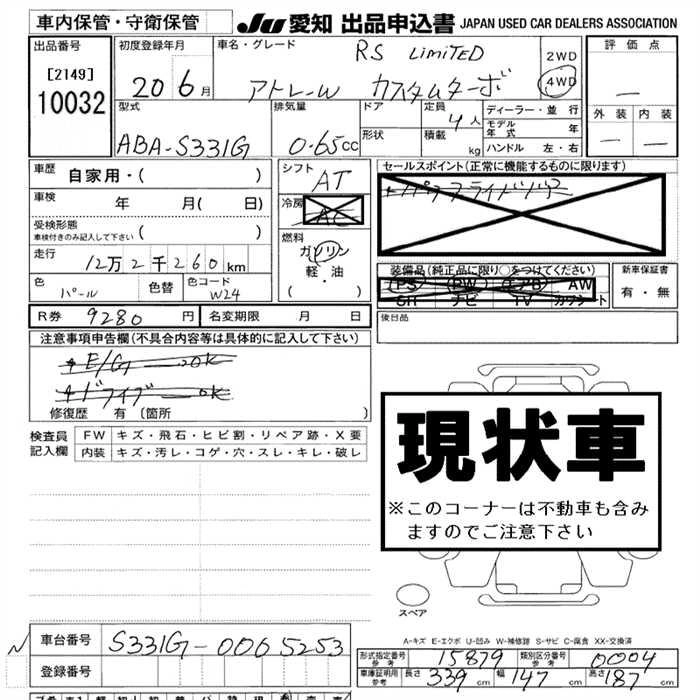 車内保管・守衛保管
JU 愛知 出品申込書 JAPAN USED CAR DEALERS ASSOCIATION
出品番号
[2149]
10032
初度登録年月
20 6月
車名・グレード
RS LIMITED
アトレーW カスタムターボ
2WD
4WD
評価点
—
外装 内装
— —
型式
ABA-S331G
排気量
0.65cc
ドア
形状
定員
4人
積載 kg
ディーラー・並行
モデル年式 年
ハンドル 左・右
車歴
自家用・( )
車検
年 月( 日)
受検形態
車検付きのみ記入して下さい ( )
走行
12万2千260km
色
パール
色替
色コード
W24
シフト
AT
冷房
AC
燃料
ガソリン
軽・油
( ・ )
セールスポイント(正常に機能するものに限ります)
装備品(純正品に限り○をつけてください)
PS PW エアB AW
SR ナビ TV カワシート
新車保証書
有・無
後日品
R券 9280円
名変期限 月 日
注意事項申告欄(不具合内容等は具体的に記入して下さい)
E/G OK
ドライブ OK
修復歴 有〔箇所 〕
検査員記入欄
FW キズ・飛石・ヒビ割・リペア跡・X要
内装 キズ・汚レ・コゲ・穴・スレ・キレ・破レ
現状車
※このコーナーは不動車も含み
ますのでご注意下さい
スペア
A-キズ E-エクボ U-凹み W-補修跡 S-サビ C-腐食 XX-交換済
車台番号 S331G-0065253
登録番号
形式指定番号 参考 15879
類別区分番号 参考 0004
車庫証明用 参考 長さ 339cm 幅 147cm 高さ 187cm